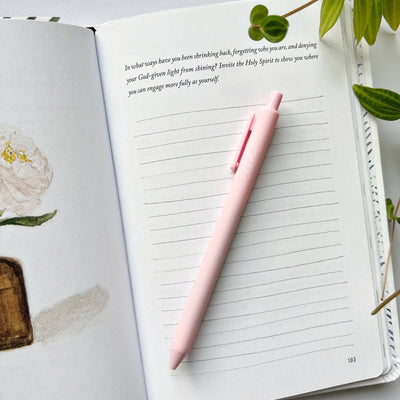 In what ways have you been shrinking back, forgetting who you are, and denying
your God-given light from shining? Invite the Holy Spirit to show you where
you can engage more fully as yourself.
103